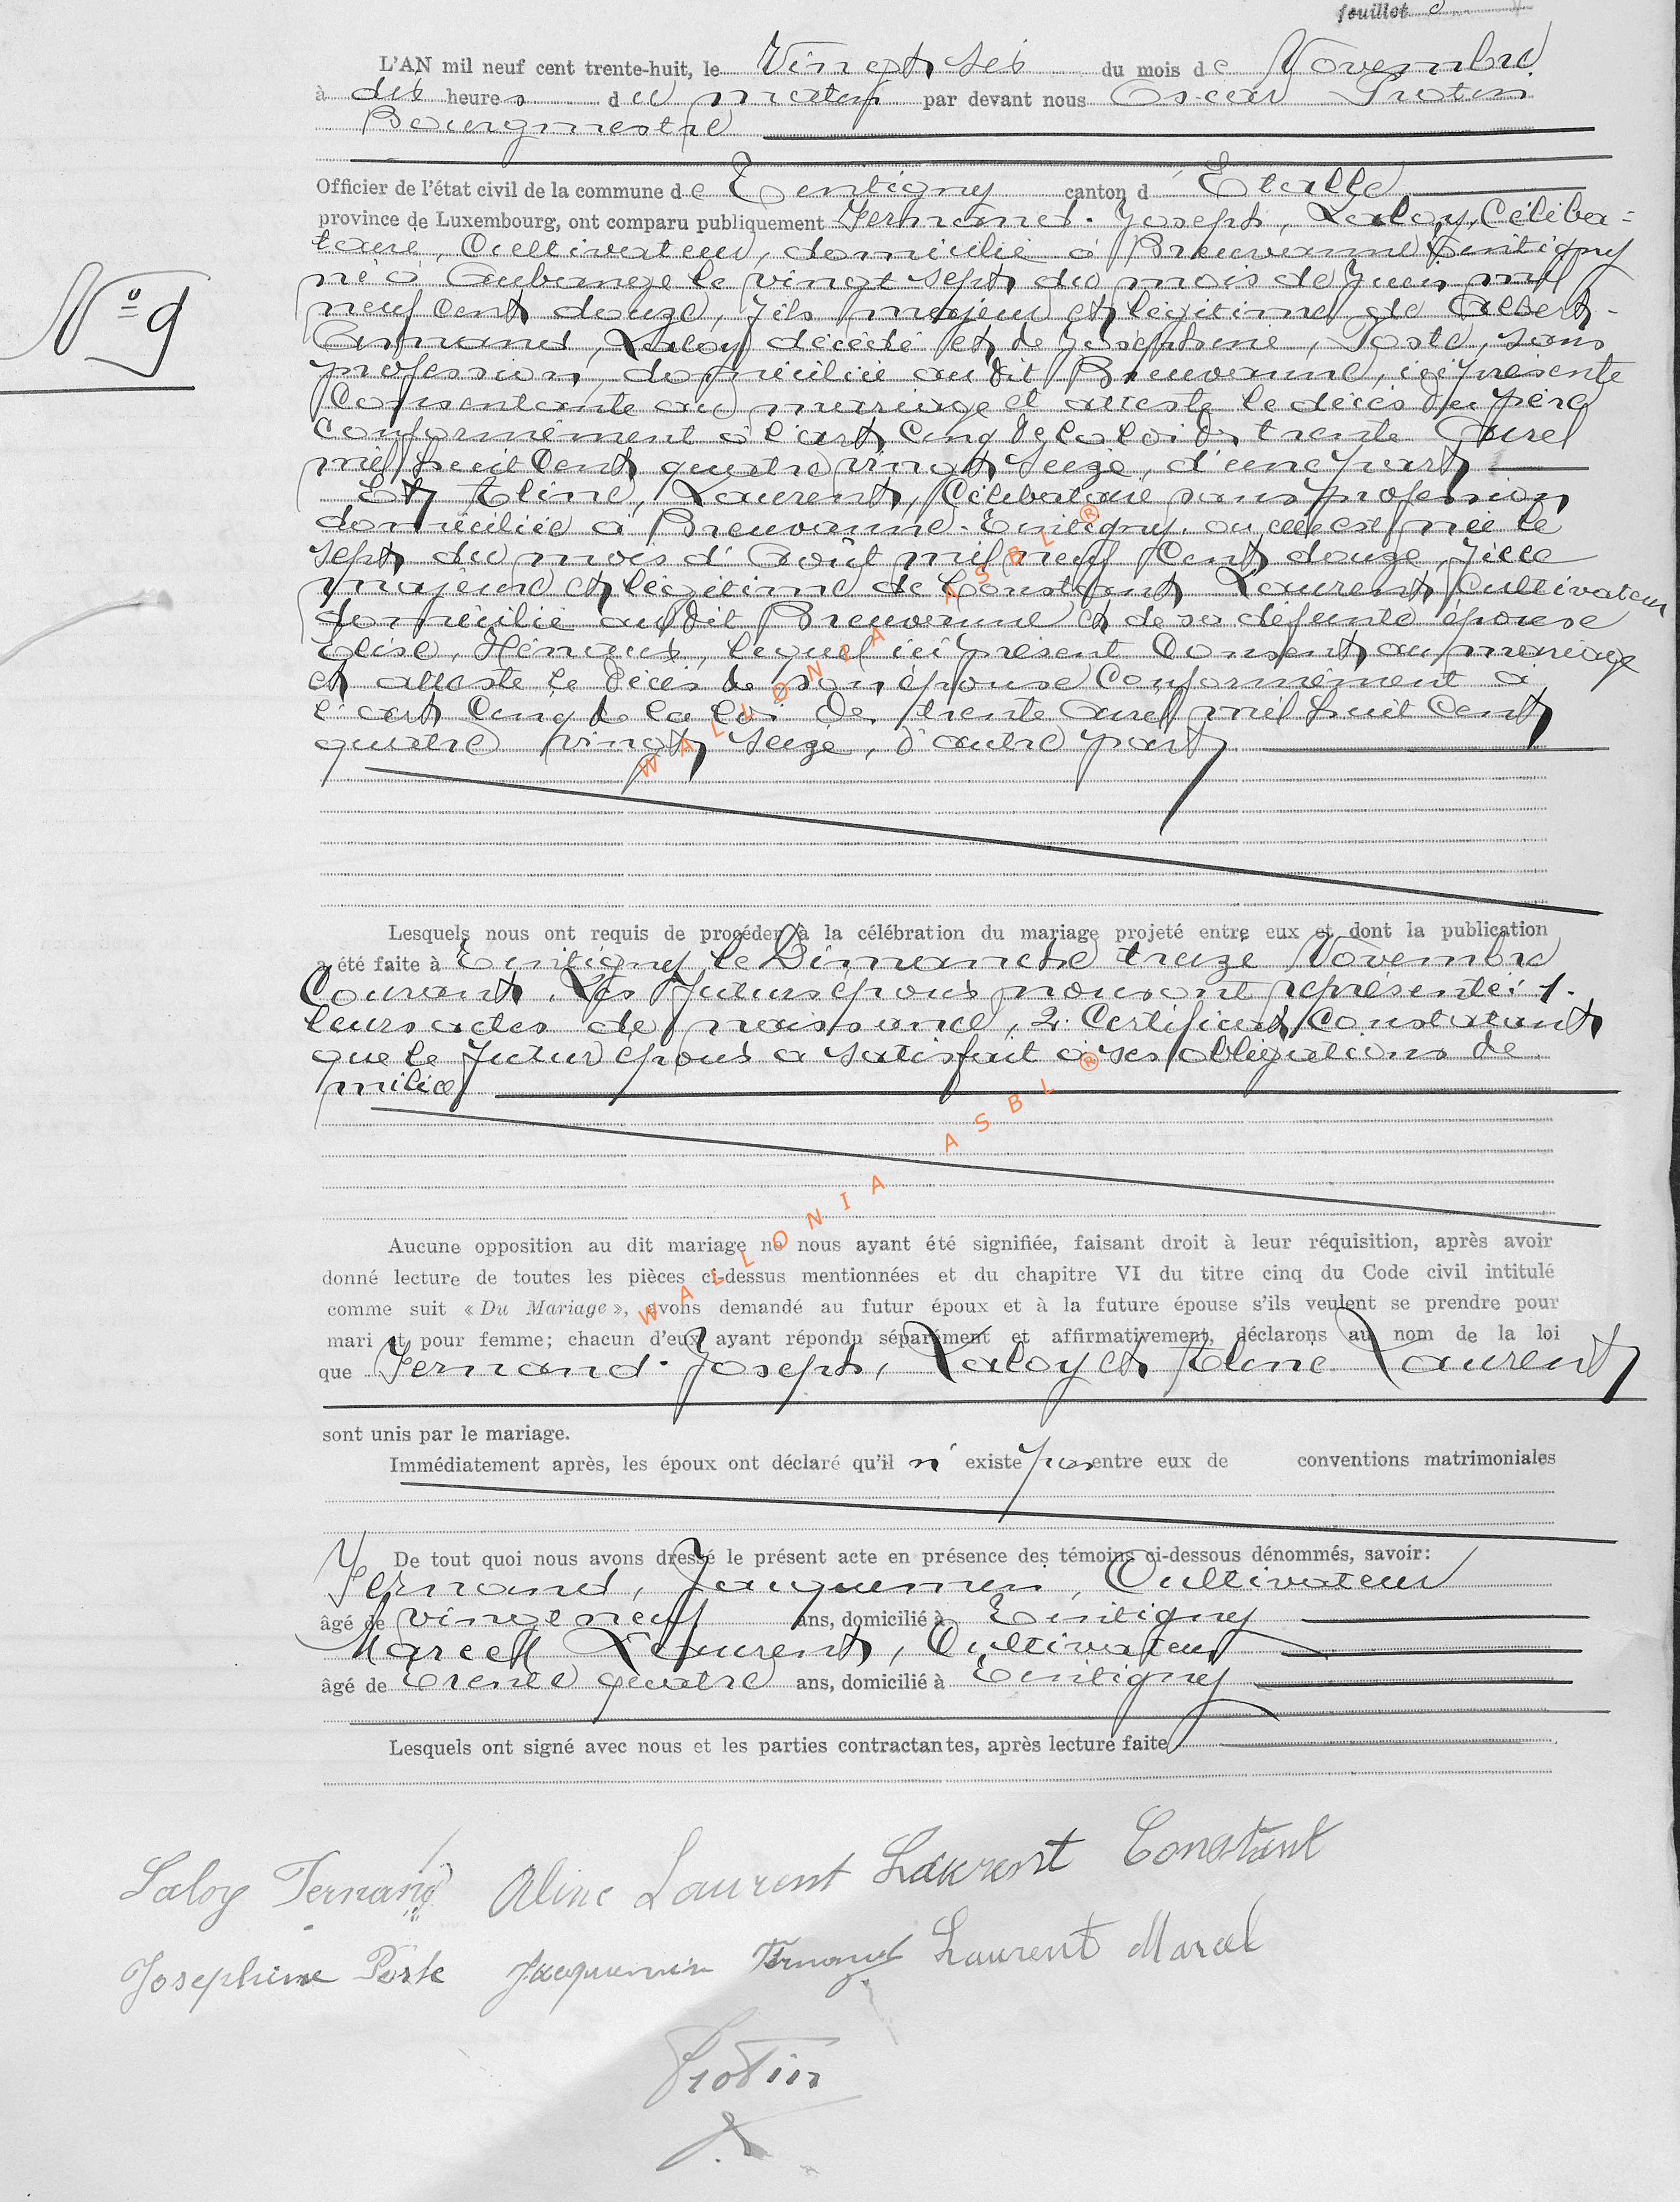 feuillet
L'AN mil neuf cent trente-huit, le Vingt six du mois de Novembre
à dix heures du matin par devant nous Oscar Protin
Bourgmestre
Officier de l'état civil de la commune de Tintigny canton d'Etalle
province de Luxembourg, ont comparu publiquement Fernand-Joseph, Laloy, Céliba-
taire, Cultivateur, domicilié à Breuvanne Tintigny
né à Aubange le vingt sept du mois de Juin mil
neuf cent douze, fils majeur et légitime de Albert-
Armand, Laloy décédé et de Joséphine, Poste, sans
profession, domiciliée au dit Breuvanne, ici présente
Consentante au mariage et atteste le décès du père
conformément à l'art Cinq de la loi du trente Avril
mil huit Cent quatre vingt seize, d'une part
Et Aline, Laurent, Célibataire sans profession
domiciliée à Breuvanne-Tintigny, où elle est née le
sept du mois d'Août mil neuf Cent douze, fille
majeure et légitime de Constant Laurent, Cultivateur
domicilié au dit Breuvanne et de sa défunte épouse
Elise, lequel ici présent Consent au mariage
et atteste le décès de son épouse Conformément à
l'art Cinq de la loi de trente Avril mil huit Cent
quatre vingt seize, d'autre part
Lesquels nous ont requis de procéder à la célébration du mariage projeté entre eux et dont la publication
a été faite à Tintigny le Dimanche treize Novembre
Courant. Les futurs époux nous ont représenté: 1.
leurs actes de naissance, 2. Certificat Constatant
que le futur époux a satisfait à ses obligations de
milice
Aucune opposition au dit mariage ne nous ayant été signifiée, faisant droit à leur réquisition, après avoir
donné lecture de toutes les pièces ci-dessus mentionnées et du chapitre VI du titre cinq du Code civil intitulé
comme suit « Du Mariage », avons demandé au futur époux et à la future épouse s'ils veulent se prendre pour
mari et pour femme; chacun d'eux ayant répondu séparément et affirmativement, déclarons au nom de la loi
que Fernand-Joseph, Laloy et Aline Laurent
sont unis par le mariage.
Immédiatement après, les époux ont déclaré qu'il n'existe pas entre eux de conventions matrimoniales
De tout quoi nous avons dressé le présent acte en présence des témoins ci-dessous dénommés, savoir:
Fernand, Jacquemin, Cultivateur
âgé de vingt neuf ans, domicilié à Tintigny
Marcel Laurent, Cultivateur
âgé de trente quatre ans, domicilié à Tintigny
Lesquels ont signé avec nous et les parties contractantes, après lecture faite
Nº 9
Laloy Fernand Aline Laurent Laurent Constant
Josephine Poste Jacquemin Fernand Laurent Marcel
Protin
WALLONIA ASBL ®
WALLONIA ASBL ®